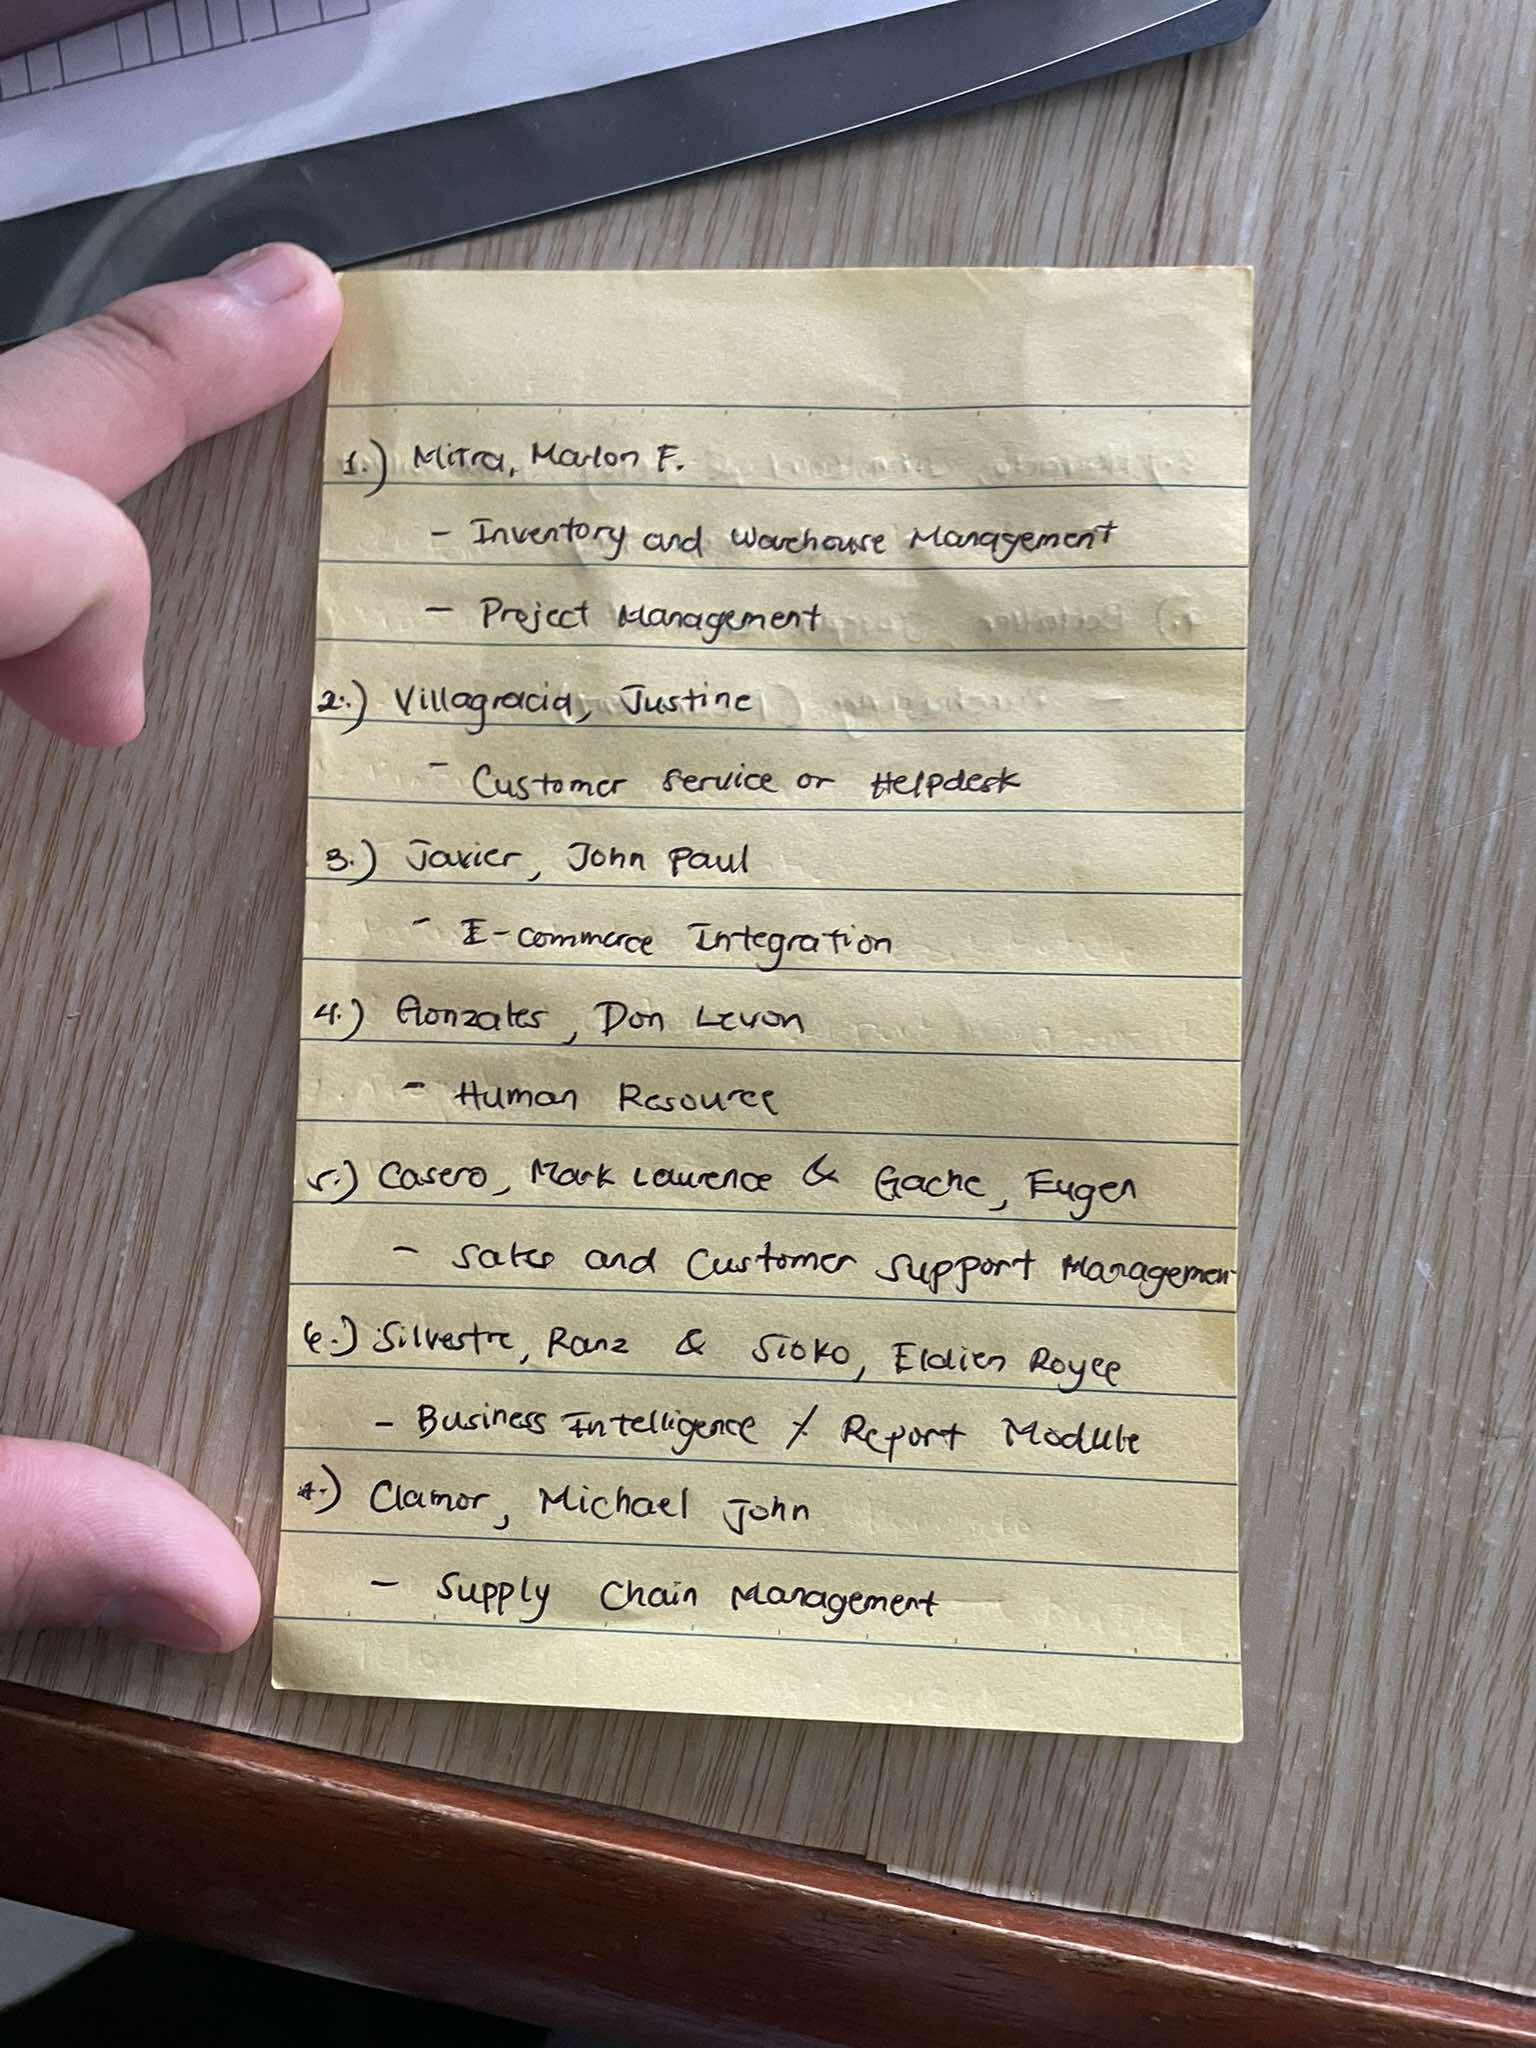 1.) Mitra, Marlon F.
- Inventory and Warehouse Management
- Project Management
2.) Villagracia, Justine
- Customer Service or Helpdesk
3.) Javier, John Paul
- E-commerce Integration
4.) Gonzales, Don Levon
- Human Resource
5.) Casero, Mark Lawrence & Gache, Eugen
- Sales and Customer Support Management
6.) Silvestre, Ranz & Sioko, Eldien Royce
- Business Intelligence / Report Module
7.) Clamor, Michael John
- Supply Chain Management